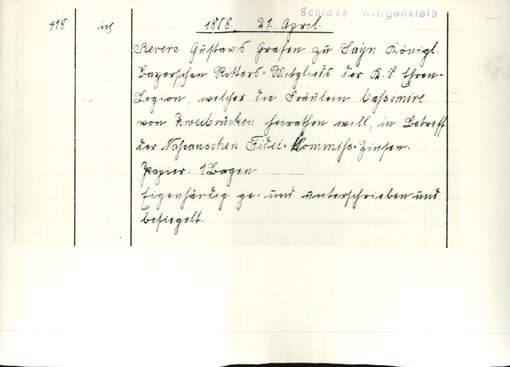 Schloss Wittgenstein
418 ich 1818. 21. April.
Revers Gustavs Grafen zu Sayn Königl.
bayerschen Ritters-Mitglieds der K. L Ehren-
Legion, welcher die Fräulein Cassimire
von Zweibrücken heirathen will, in Betreff
der Nassauschen Fidei-Kommiss-Zinsen.
Papier. 1 Bogen
Eigenhändig ge- und unterschrieben und
besiegelt.